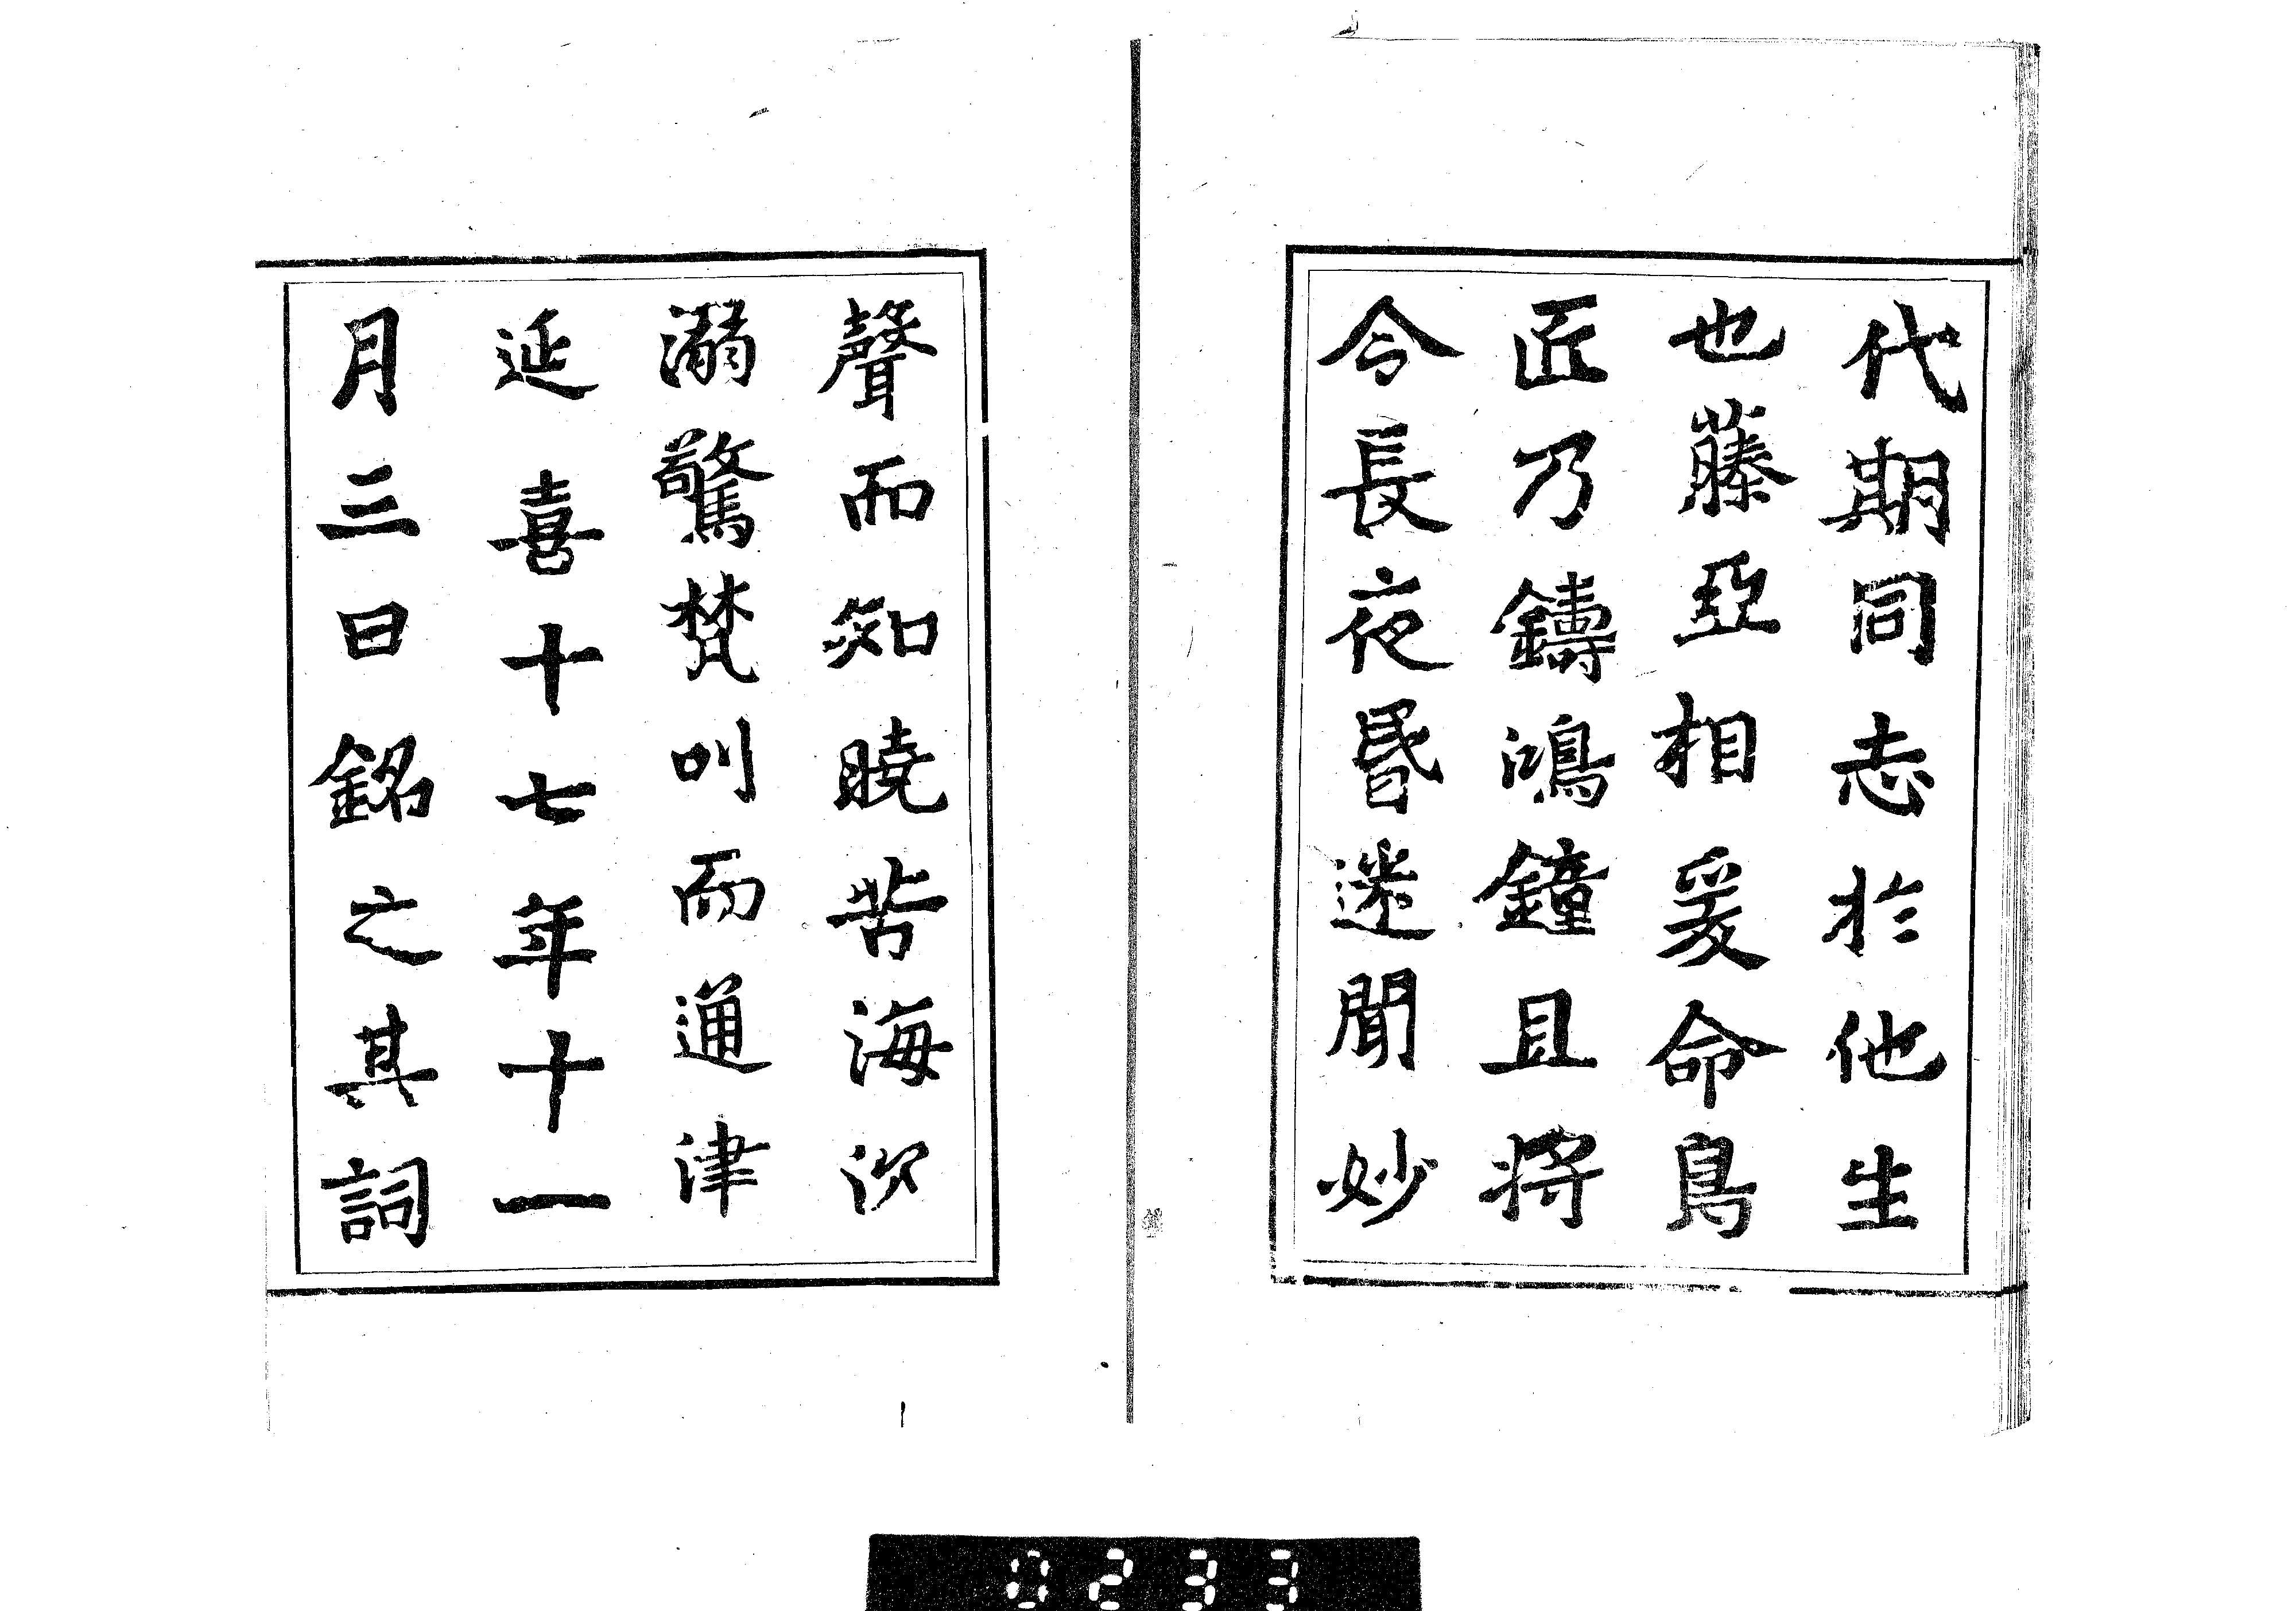 代期同志於他生
也藤亞相爰命鳧
匠乃鑄鴻鐘且將
令長夜昬迷聞妙
聲而知曉苦海沉
溺驚梵叫而通津
延喜十七年十一
月三日銘之其詞
0233